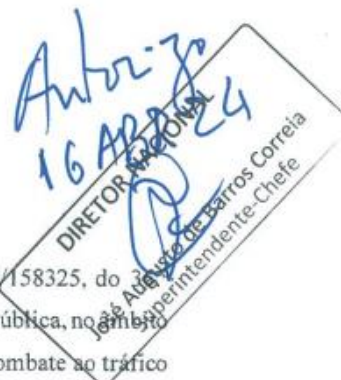 Autorizo
16 ABR 24
DIRETOR NACIONAL
José Augusto de Barros Correia
Superintendente-Chefe
/158325, do
ública, no âmbito
ombate ao tráfico